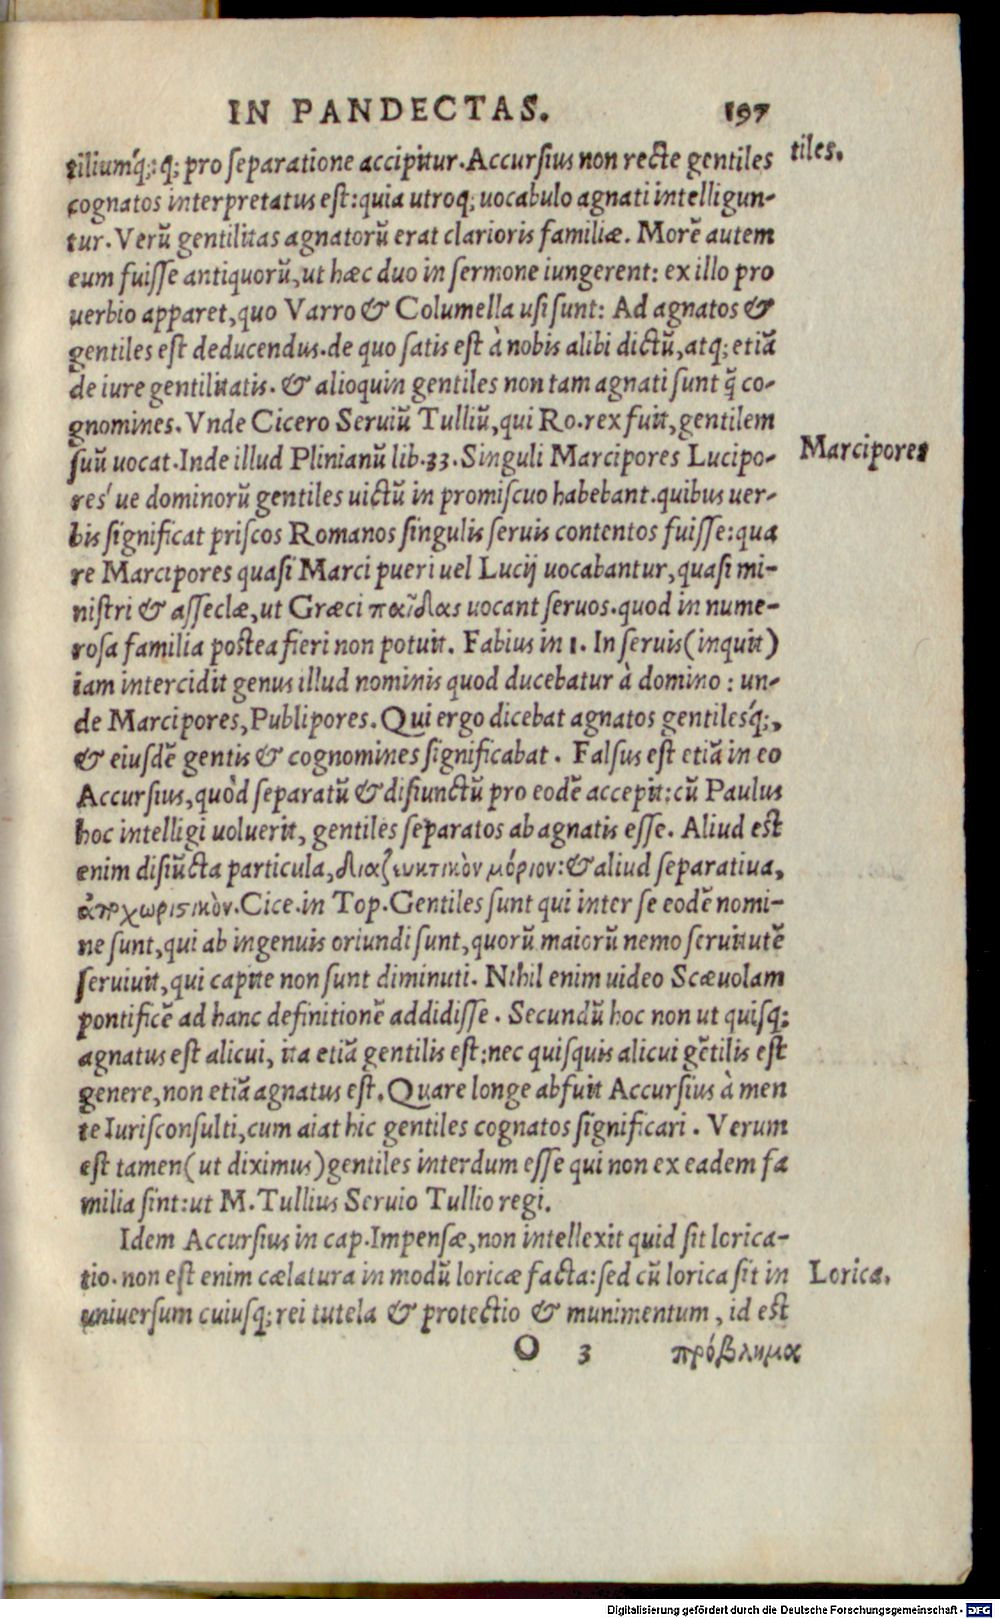 IN PANDECTAS. 197
tiliumq́;: q; pro separatione accipitur. Accursius non recte gentiles
tiles.
cognatos interpretatus est: quia utroq; uocabulo agnati intelligun-
tur. Verũ gentilitas agnatorũ erat clarioris familiæ. Morẽ autem
eum fuisse antiquorũ, ut hæc duo in sermone iungerent: ex illo pro
uerbio apparet, quo Varro & Columella usi sunt: Ad agnatos &
gentiles est deducendus. de quo satis est à nobis alibi dictũ, atq; etiã
de iure gentilitatis. & alioquin gentiles non tam agnati sunt q̃ co-
gnomines. Vnde Cicero Seruiũ Tulliũ, qui Ro. rex fuit, gentilem
suũ uocat. Inde illud Plinianũ lib. 33. Singuli Marcipores Lucipo-
Marcipores
res´ue dominorũ gentiles uictũ in promiscuo habebant. quibus uer-
bis significat priscos Romanos singulis seruis contentos fuisse: qua
re Marcipores quasi Marci pueri uel Lucij uocabantur, quasi mi-
nistri & asseclæ, ut Græci παῖδας uocant seruos. quod in nume-
rosa familia postea fieri non potuit. Fabius in 1. In seruis (inquit)
iam intercidit genus illud nominis quod ducebatur à domino: un-
de Marcipores, Publipores. Qui ergo dicebat agnatos gentilesq́;,
& eiusdẽ gentis & cognomines significabat. Falsus est etiã in eo
Accursius, quòd separatũ & disiunctũ pro eodẽ accepit: cũ Paulus
hoc intelligi uoluerit, gentiles separatos ab agnatis esse. Aliud est
enim disiũcta particula, διαζευκτικὸν μόριον: & aliud separatiua,
ἀποχωριστικὸν. Cice. in Top. Gentiles sunt qui inter se eodẽ nomi-
ne sunt, qui ab ingenuis oriundi sunt, quorũ maiorũ nemo seruitutẽ
seruiuit, qui capite non sunt diminuti. Nihil enim uideo Scæuolam
pontificẽ ad hanc definitionẽ addidisse. Secundũ hoc non ut quisq;
agnatus est alicui, ita etiã gentilis est: nec quisquis alicui gẽtilis est
genere, non etiã agnatus est. Quare longe abfuit Accursius à men
te Iurisconsulti, cum aiat hic gentiles cognatos significari. Verum
est tamen (ut diximus) gentiles interdum esse qui non ex eadem fa
milia sint: ut M. Tullius Seruio Tullio regi.
Idem Accursius in cap. Impensæ, non intellexit quid sit lorica-
tio. non est enim cælatura in modũ loricæ facta: sed cũ lorica sit in
Lorica.
uniuersum cuiusq; rei tutela & protectio & munimentum, id est
O 3 πρόβλημα
Digitalisierung gefördert durch die Deutsche Forschungsgemeinschaft - DFG